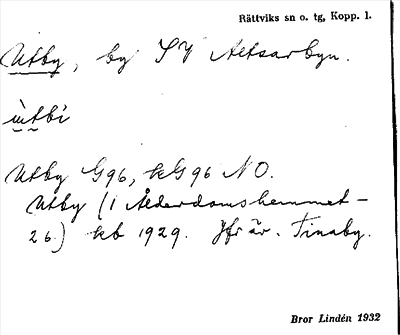 Rättviks sn o. tg, Kopp. l.
Utby, by SV Altsarbyn.
ùtbi
Utby G96, kG96 NO.
Utby (1 Ålderdomshemmet-
26.) kb 1929. Jfr äv. Tinaby.
Bror Lindén 1932